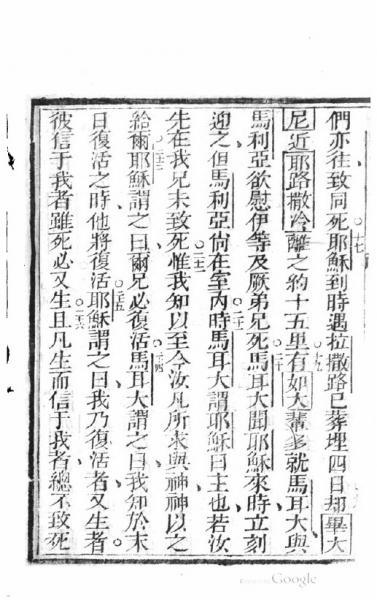 們亦往致同死耶穌到時遇拉撒路已葬埋四日却畢大
尼近耶路撒冷離之約十五里有如大輩多就馬耳大與
馬利亞欲慰伊等及厥弟兄死馬耳大聞耶穌來時立刻
迎之但馬利亞尚在室內時馬耳大謂耶穌曰主也若汝
先在我兄未致死惟我知以至今汝凡所求與神神以之
給爾耶穌謂之曰爾兄必復活馬耳大謂之曰我知於末
日復活之時他將復活耶穌謂之曰我乃復活者又生者
彼信于我者雖死必又生且凡生而信于我者總不致死
Google